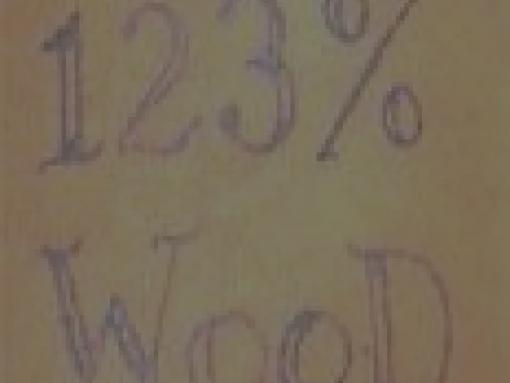 123%
WooD